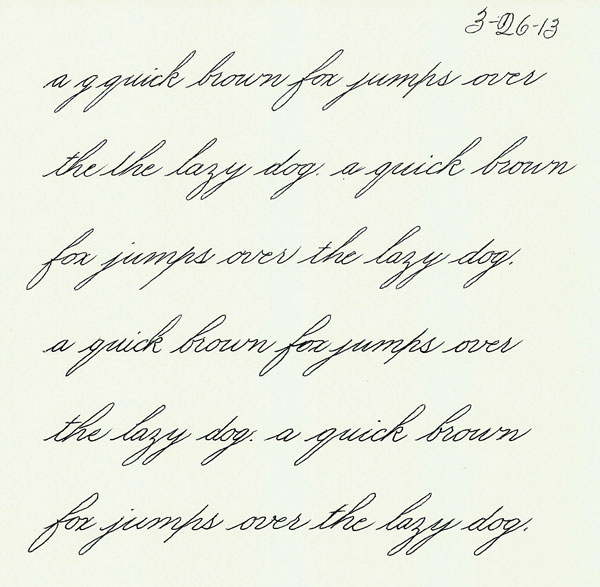 3-26-13
a q quick brown fox jumps over
the the lazy dog. a quick brown
fox jumps over the lazy dog.
a quick brown fox jumps over
the lazy dog. a quick brown
fox jumps over the lazy dog.